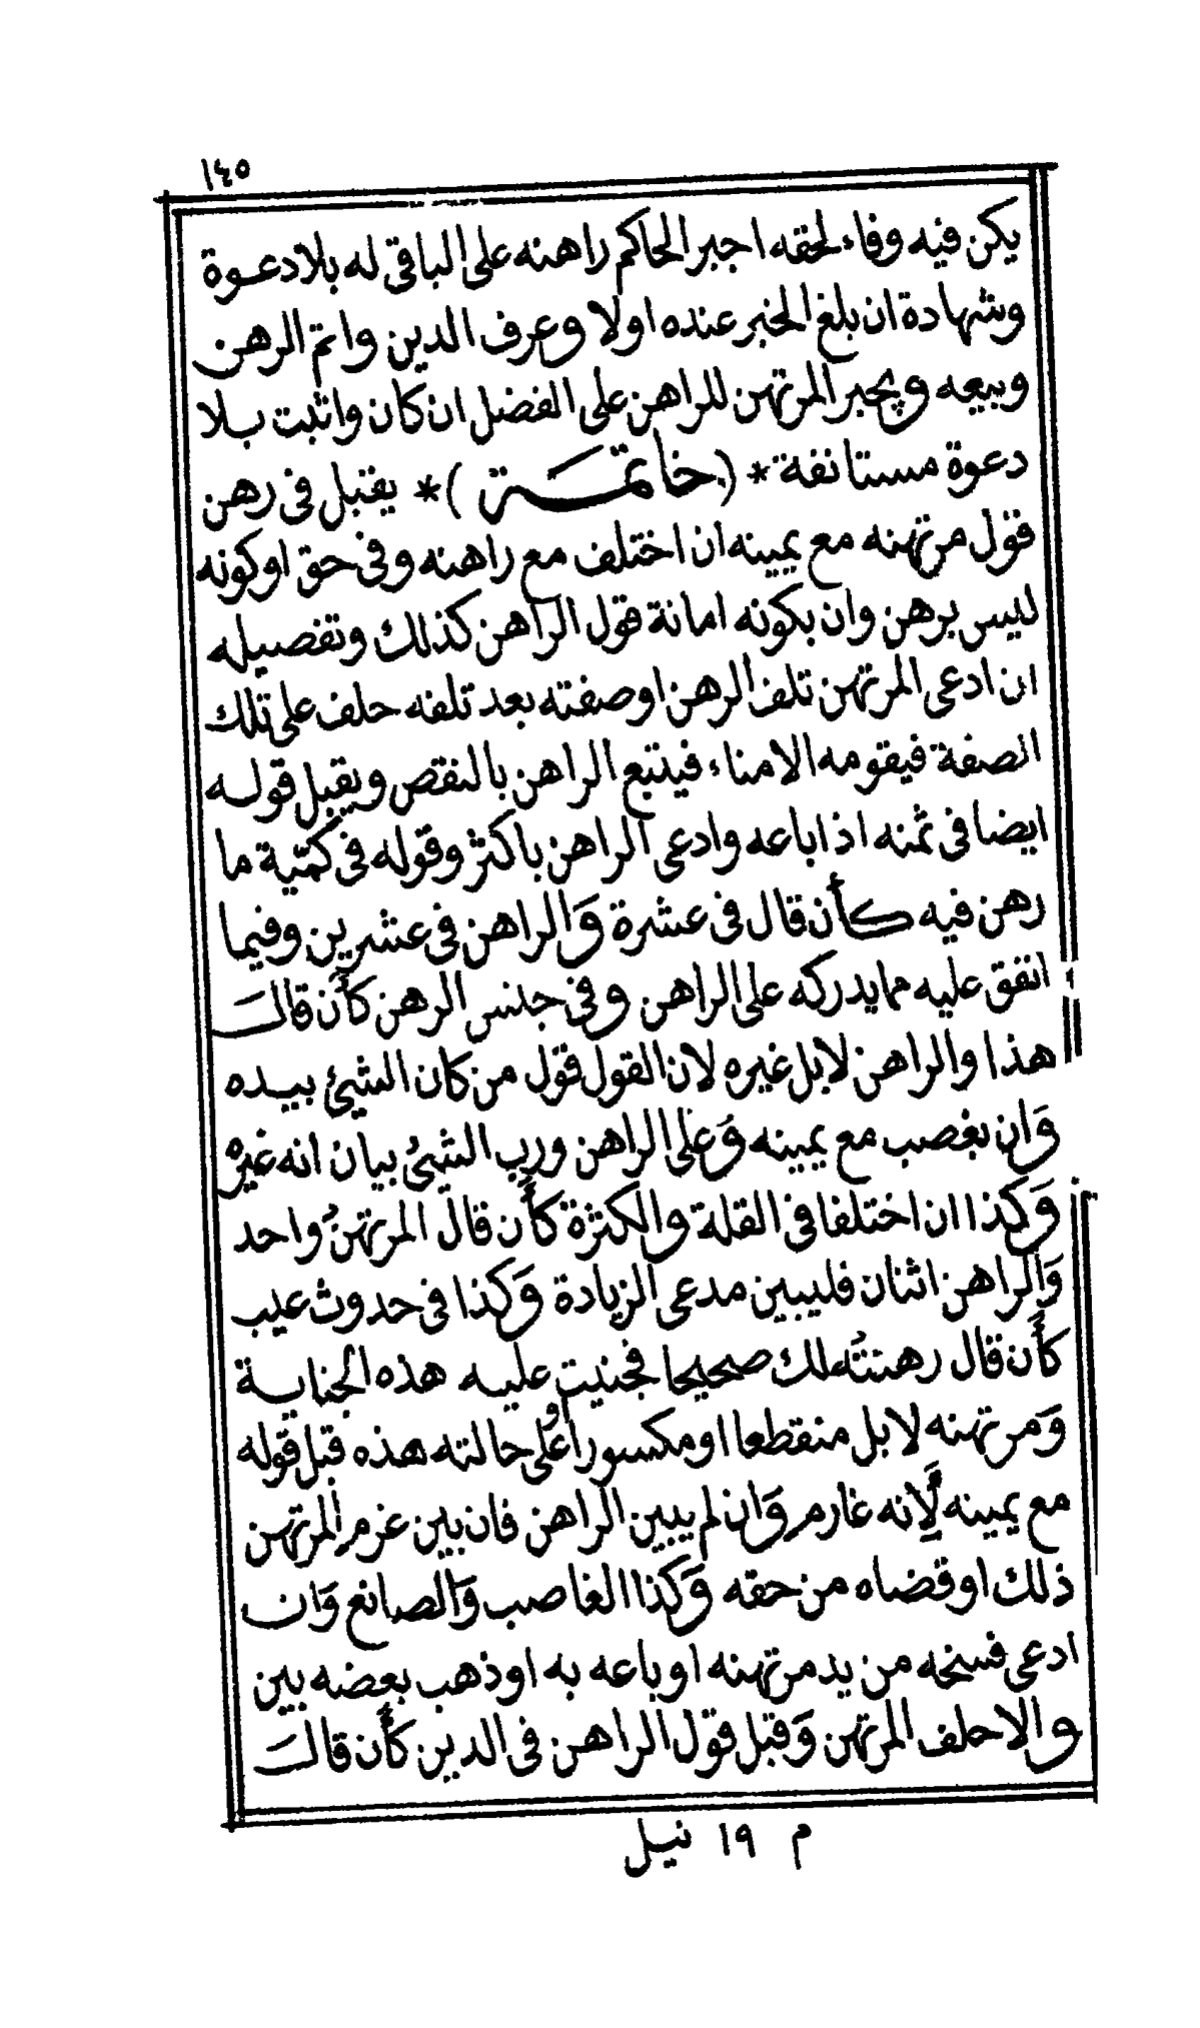 ١٤٥
يكن فيه وفاء لحقه اجبر الحاكم راهنه على الباقى له بلا دعوة
وشهادة ان بلغ الخبر عنده اولا وعرف الدين واتم الرهن
وبيعه ويجبر المرتهن للراهن على الفضل ان كان واثبت بلا
دعوة مستانفة * (خاتمة) * يقبل فى رهن
قول مرتهنه مع يمينه ان اختلف مع راهنه وفى حق اوكونه
ليس برهن وان بكونه امانة قول الراهن كذلك وتفصيله
ان ادعى المرتهن تلف الرهن اوصفته بعد تلفه حلف على تلك
الصفة فيقومه الامناء فيتبع الراهن بالنقص ويقبل قوله
ايضا فى ثمنه اذا باعه وادعى الراهن باكثر وقوله فى كمّية ما
رهن فيه كأن قال فى عشرة وَالراهن فى عشرين وفيما
انفق عليه مما يدركه على الراهن وفى جنس الرهن كأن قالَ
هذا والراهن لا بل غيره لان القول قول من كان الشيئ بيده
وَان بغصب مع يمينه وَعلى الراهن ورب الشيئ بيان انه غيره
وَكذا ان اختلفا فى القلة والكثرة كأن قال المرتهنُ واحد
وَالراهن اثنان فليبين مدعى الزيادة وَكذا فى حدوث عيب
كأن قال رهنتُه لك صحيحا فجنيت عليه هذه الجناية
وَمرتهنه لا بل منقطعا اومكسورا اوعلى حالته هذه قبل قوله
مع يمينه لأَنه غارم وَان لم يبين الراهن فان بين غرم المرتهن
ذلك اوقضاه من حقه وَكذا الغاصب وَالصانع وَان
ادعى فسخه من يد مرتهنه اوباعه به اوذهب بعضه بين
والا حلف المرتهن وَقبل قول الراهن فى الدين كأن قالَ
م ١٩ نيل